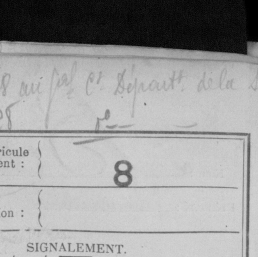 8 au Gal Ct Départt de la S
08
ricule
ent :
8
on :
SIGNALEMENT.